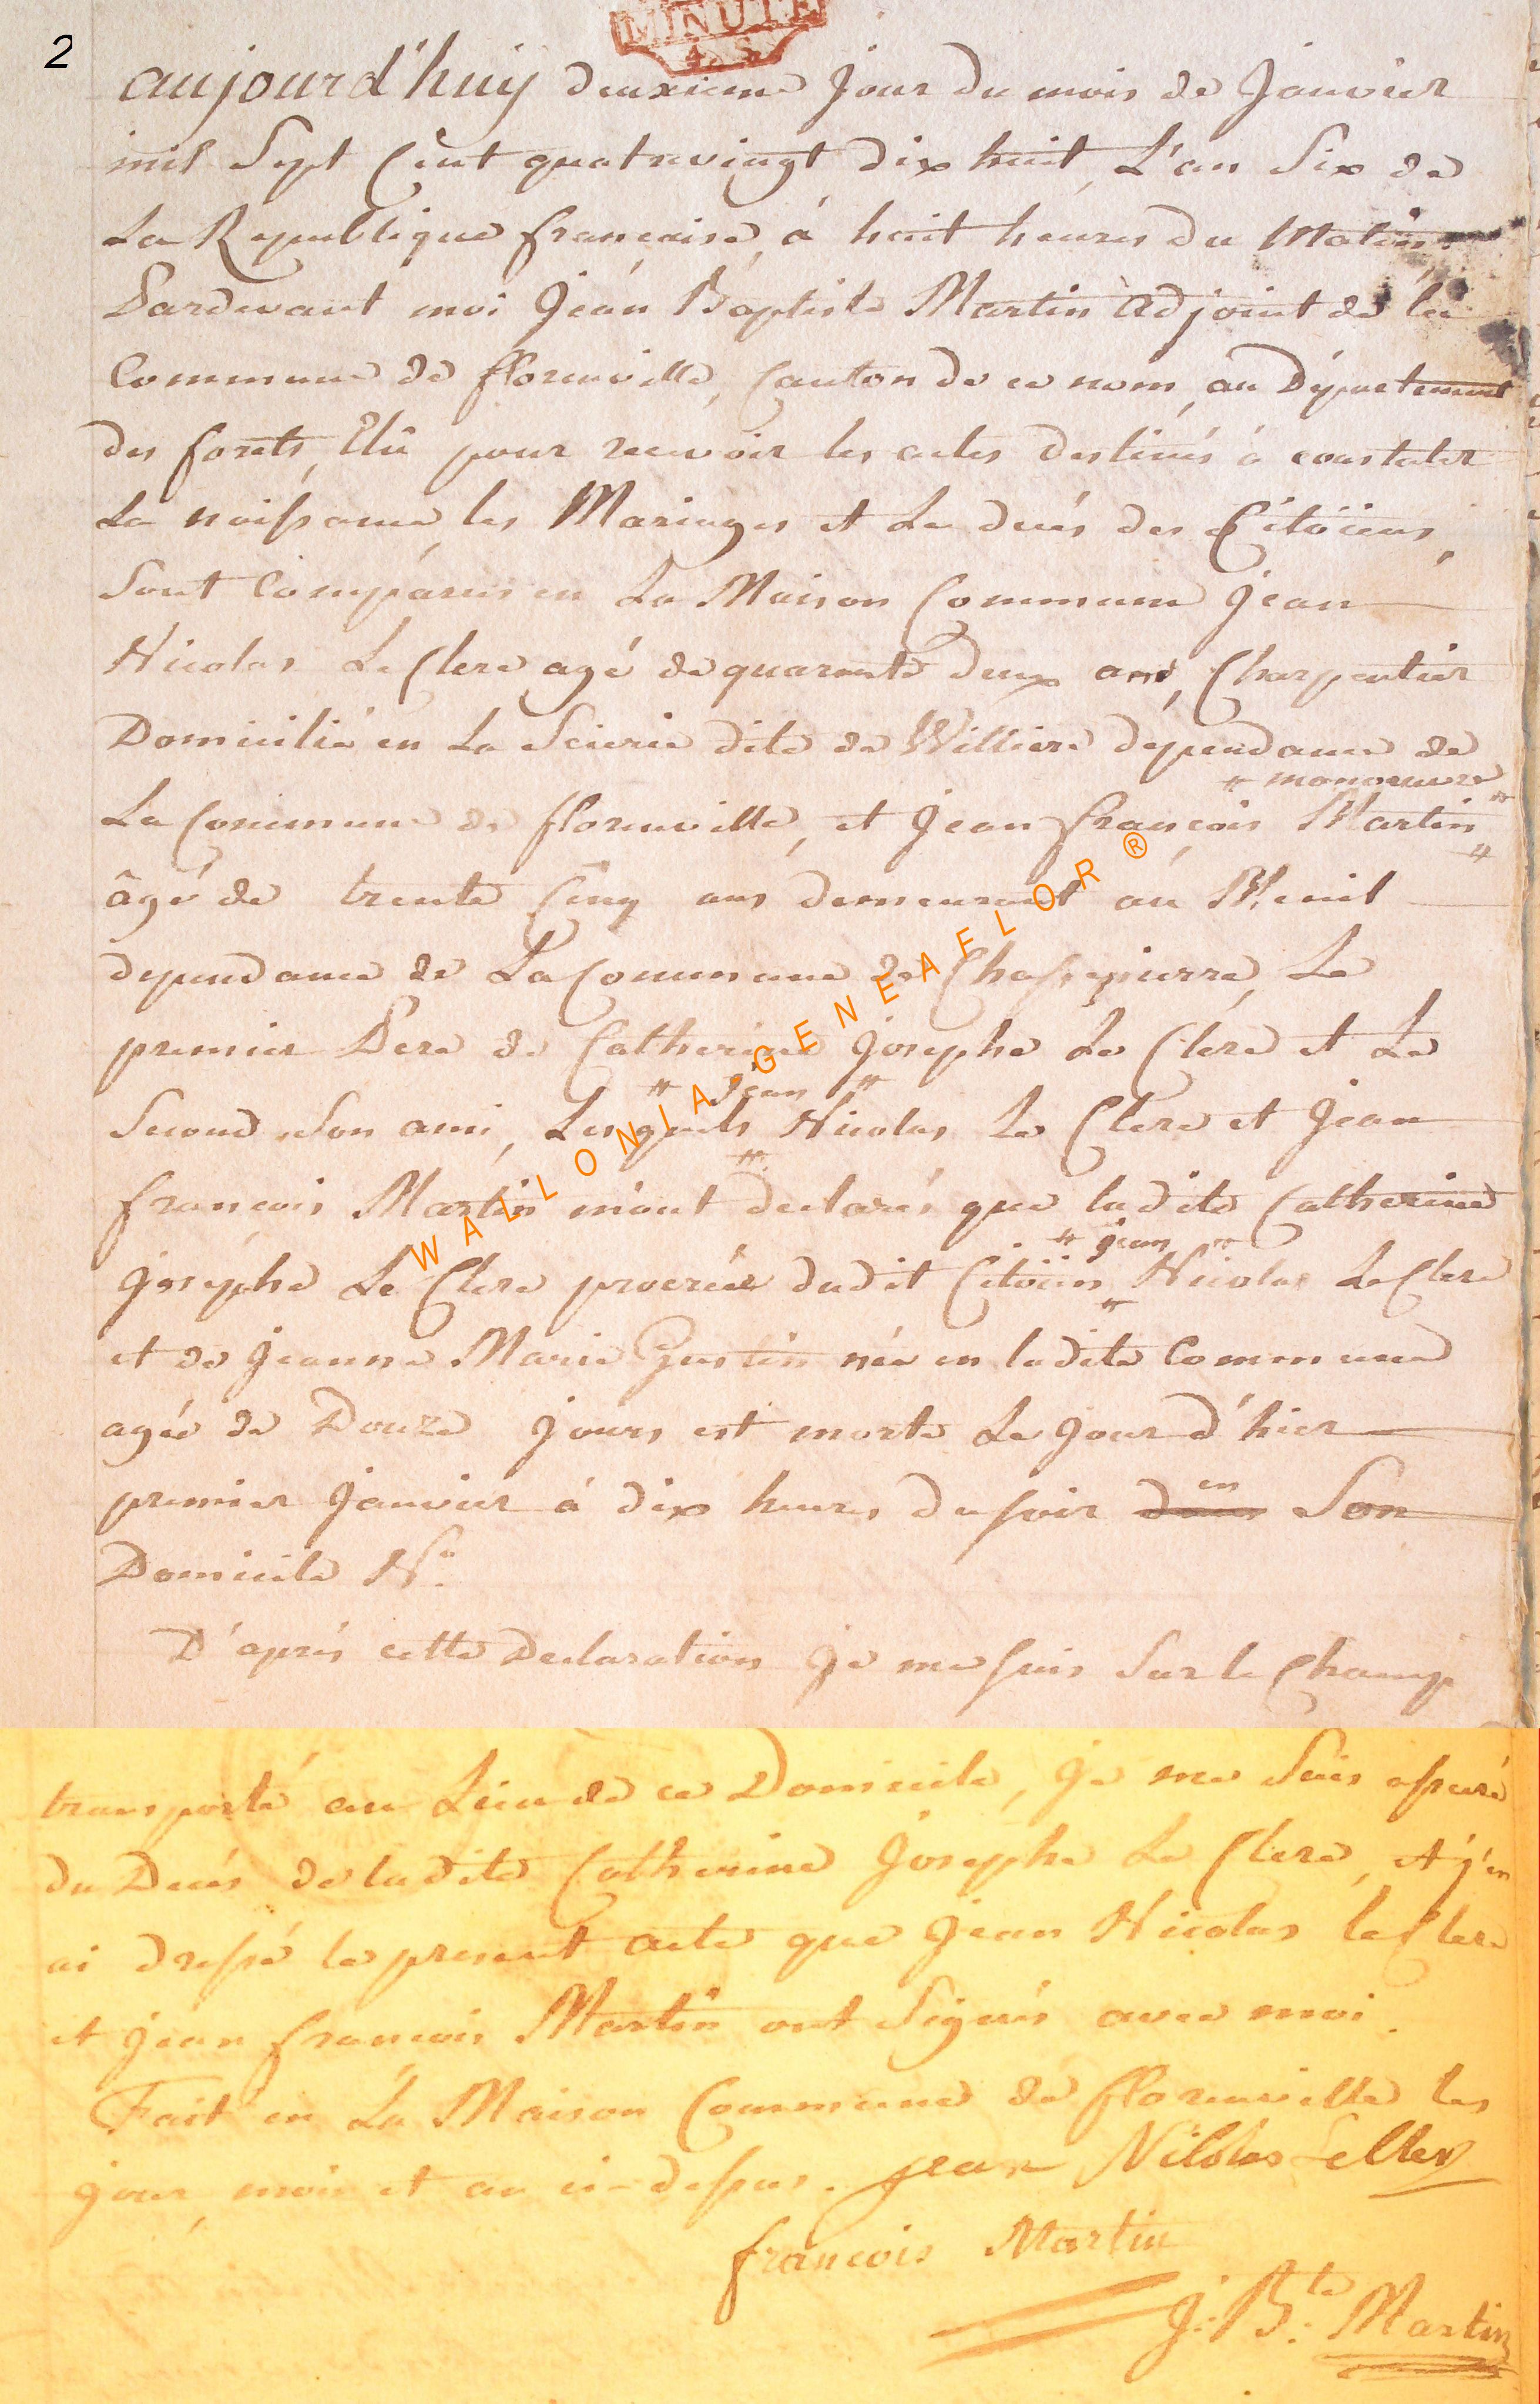 MINUTE
4. S.
2
aujourd'huy deuxieme jour du mois de Janvier
mil Sept Cent quatrevingt dix huit, L'an Six de
La Republique française, à huit heures du Matin.
Pardevant moi Jean Baptiste Martin adjoint de la
Commune de florenville, Canton de ce nom, au Département
des forets, Elû pour recevoir les actes destinés à constater
La naissance, les Mariages et Le decés des Citöiens,
Sont Comparus en La Maison Commune Jean
Nicolas Le Clere agé de quarante deux ans, Charpentier
Domicilié en La Scierie dite de Williere dépendance de
" manoeuvre "
La Commune de florenville, et Jean françois Martin "
âgé de trente Cinq ans demeurant au Menil
dependance de La Commune de Chassepierre, Le
premier Pere de Catherine Josephe Le Clere et Le
" Jean "
Second Son ami, Lesquels " Nicolas Le Clere et Jean
françois Martin m'ont declarés que ladite Catherine
" jean "
Josephe Le Clere procréée dudit Citöien " Nicolas Le Clere
et de Jeanne Marie Gustin née en ladite Commune
agée de Douze jours est morte Le jour d'hier
en
premier Janvier à dix heures du soir dans Son
Domicile N.o
D'aprés cette Declaration je me suis Sur le Champ
transporté au Lieu de ce Domicile, je me Suis assuré
du Decés de ladite Catherine Josephe Le Clere, et j'en
ai dressé le present acte que Jean Nicolas le Clere
et Jean francois Martin ont Signés avec moi.
Fait en La Maison Commune de florenville les
jour, mois et an ci-dessus. jean Nilolas Leller
francois Martin
J: B.te Martin
WALLONIA GENEAFLOR ®